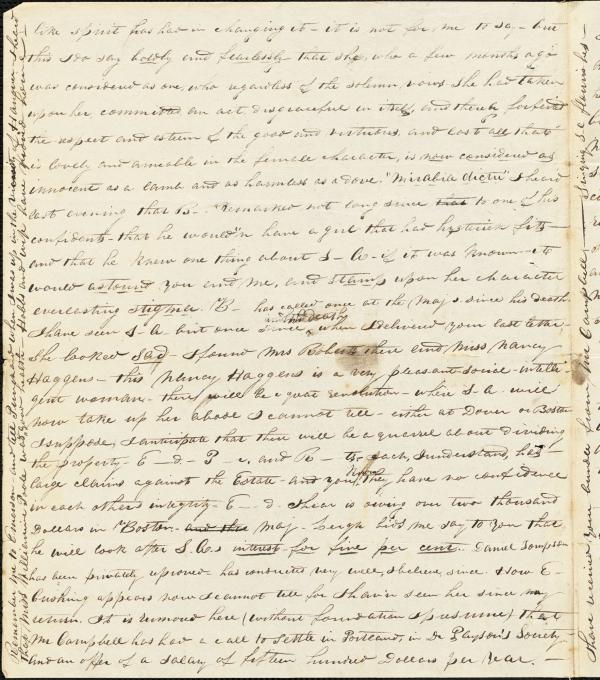 like spirit has had in changing it - it is not for me to say - but
this I do say boldly and fearlessly - that she, who a few months ago
was considered as one, who regardless of the solemn vows she had taken
upon her, committed an act, disgraceful in itself, and thereby forfeited
the respect and esteem of the good and virtuous, and lost all that
is lovely and amiable in the female character, is now considered as
innocent as a lamb and as harmless as a dove. "Mirabile dictu" I heard
last evening that B. remarked not long since that to one of his
confidents - that he wouldn have a girl that had hysterick fits -
and that he knew one thing about S - A - if it was known - it
would astound you and me, and stamp upon her character
everlasting stigma. B - has called once at the Maj's since his death.
I have seen S - A but once since his death, when I delivered your last letter,
She looked sad - I found Mrs Roberts there and Miss Nancy
Haggens - this Nancy Haggens is a very pleasant - social - intelli-
gent woman - there will be a great revolution - where S. A. will
now take up her abode I cannot tell - either at Dover or Boston
I suppose, I anticipate that there will be a quarrel about dividing
the property - E - d. P - e, and R - each, I understand, has
large claims against the Estate - and you know they have no confidence
in each others integrity - E - d. I hear is owing over two thousand
Dollars in Boston - and the Maj - Leigh bids me say to you that
he will look after S. A.s interest for five per cent. Daniel Simpson
has been privately reproved - has conducted very well, I believe, since. How E -
Cushing appears now I cannot tell for I havn seen her since my
return. It is rumored here (without foundation I presume) that
Mr Campbell has had a call to settle in Portland, in Dr Payson's Society -
and an offer of a salary of fifteen hundred Dollars per Year. -
Remember me to Emerson and tell